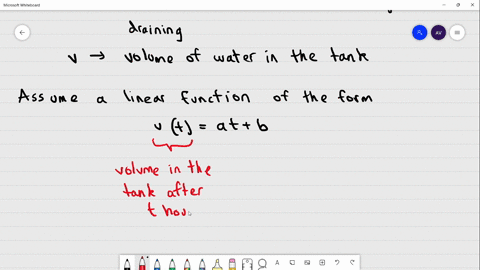 Microsoft Whiteboard
draining
v → volume of water in the tank
Assume a linear function of the form
v(t) = at + b
volume in the
tank after
t hou
AV